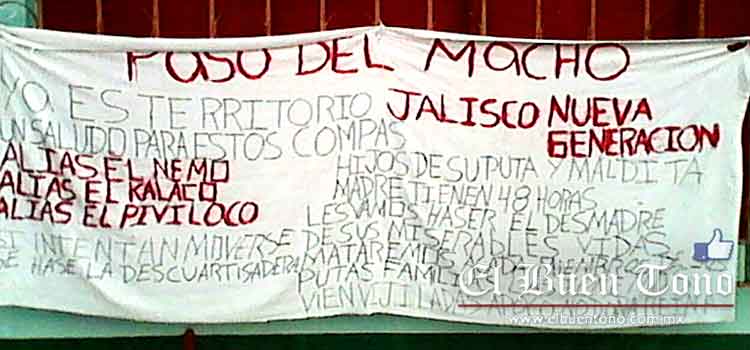 PASO DEL MACHO
YA ES TERRITORIO JALISCO NUEVA GENERACION
UN SALUDO PARA ESTOS COMPAS
ALIAS EL NEMO
ALIAS EL KALACO
ALIAS EL PIVILOCO
HIJOS DE SU PUTA Y MALDITA
MADRE TIENEN 48 HORAS
LES VAMOS HASER EL DESMADRE
DE SUS MISERABLES VIDAS
SI INTENTAN MOVERSE MATAREMOS
SE HASE LA DESCUARTISADERA
PUTAS
VIEN VIJILADAS
El Buen Tono
www.elbuentono.com.mx